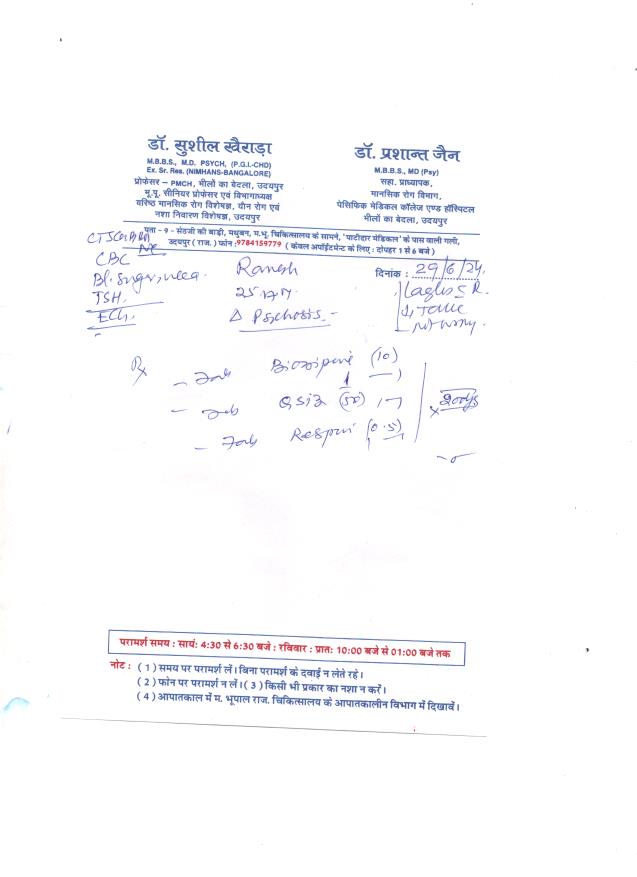 डॉ. सुशील खैराड़ा
M.B.B.S., M.D. PSYCH, (P.G.I.-CHD)
Ex. Sr. Res. (NIMHANS-BANGALORE)
प्रोफेसर – PMCH, भीलों का बेदला, उदयपुर
भू.पू. सीनियर प्रोफेसर एवं विभागाध्यक्ष
वरिष्ठ मानसिक रोग विशेषज्ञ, यौन रोग एवं
नशा निवारण विशेषज्ञ, उदयपुर
डॉ. प्रशान्त जैन
M.B.B.S., MD (Psy)
सहा. प्राध्यापक,
मानसिक रोग विभाग,
पेसिफिक मेडिकल कॉलेज एण्ड हॉस्पिटल
भीलों का बेदला, उदयपुर
पता - 9 - सेठजी की बाड़ी, मधुबन, म.भू. चिकित्सालय के सामने, 'पाटीदार मेडिकल' के पास वाली गली,
उदयपुर ( राज. ) फोन :9784159779 ( केवल अपॉईंटमेन्ट के लिए : दोपहर 1 से 6 बजे )
CBC
TSH.
Ramesh
Δ Psychosis -
दिनांक : 29/6/24
Rx
- Tab (10)
- Tab (50)
- Tab (0.5)
परामर्श समय : सायं: 4:30 से 6:30 बजे : रविवार : प्रात: 10:00 बजे से 01:00 बजे तक
नोट : ( 1 ) समय पर परामर्श लें। बिना परामर्श के दवाई न लेते रहे।
( 2 ) फोन पर परामर्श न लें। ( 3 ) किसी भी प्रकार का नशा न करें।
( 4 ) आपातकाल में म. भूपाल राज. चिकित्सालय के आपातकालीन विभाग में दिखावें।